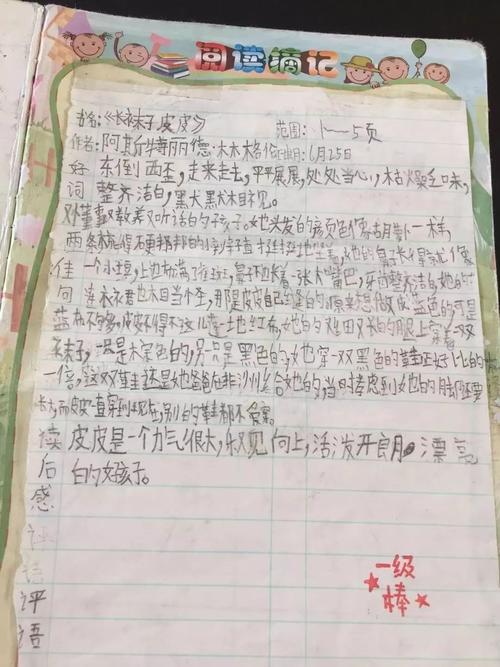 阅读摘记
书名:《长袜子皮皮》 范围:1——5页
作者:阿斯特丽德·林格伦 日期:6月25日
好 东倒西歪,走来走去,平平展展,处处当心,枯燥乏味,
词 整齐洁白,
又懂事又有教养又听话的好孩子。她头发的颜色像胡萝卜一样,
两条梳得
佳 一个小 上边布满了雀斑,鼻子下边长着一张大嘴巴,牙齿整齐洁白,她的
句 连衣裙也相当怪,那是皮皮自己缝的。原来想做成蓝色的,可是
蓝布不够,皮皮不得不这儿 一块红布,她的又细又长的腿上穿着一双
长袜子,一只是棕色的,另一只是黑色的。她穿一双黑色的鞋正好比她的
一倍,这双鞋还是她爸爸在 给她的,当时考虑到她的脚还要
长,而皮皮一直穿到现在,别的鞋都不爱穿。
读 皮皮是一个力气很大, 向上,活泼开朗 漂亮
后 的好孩子。
感
评
语
一级
棒